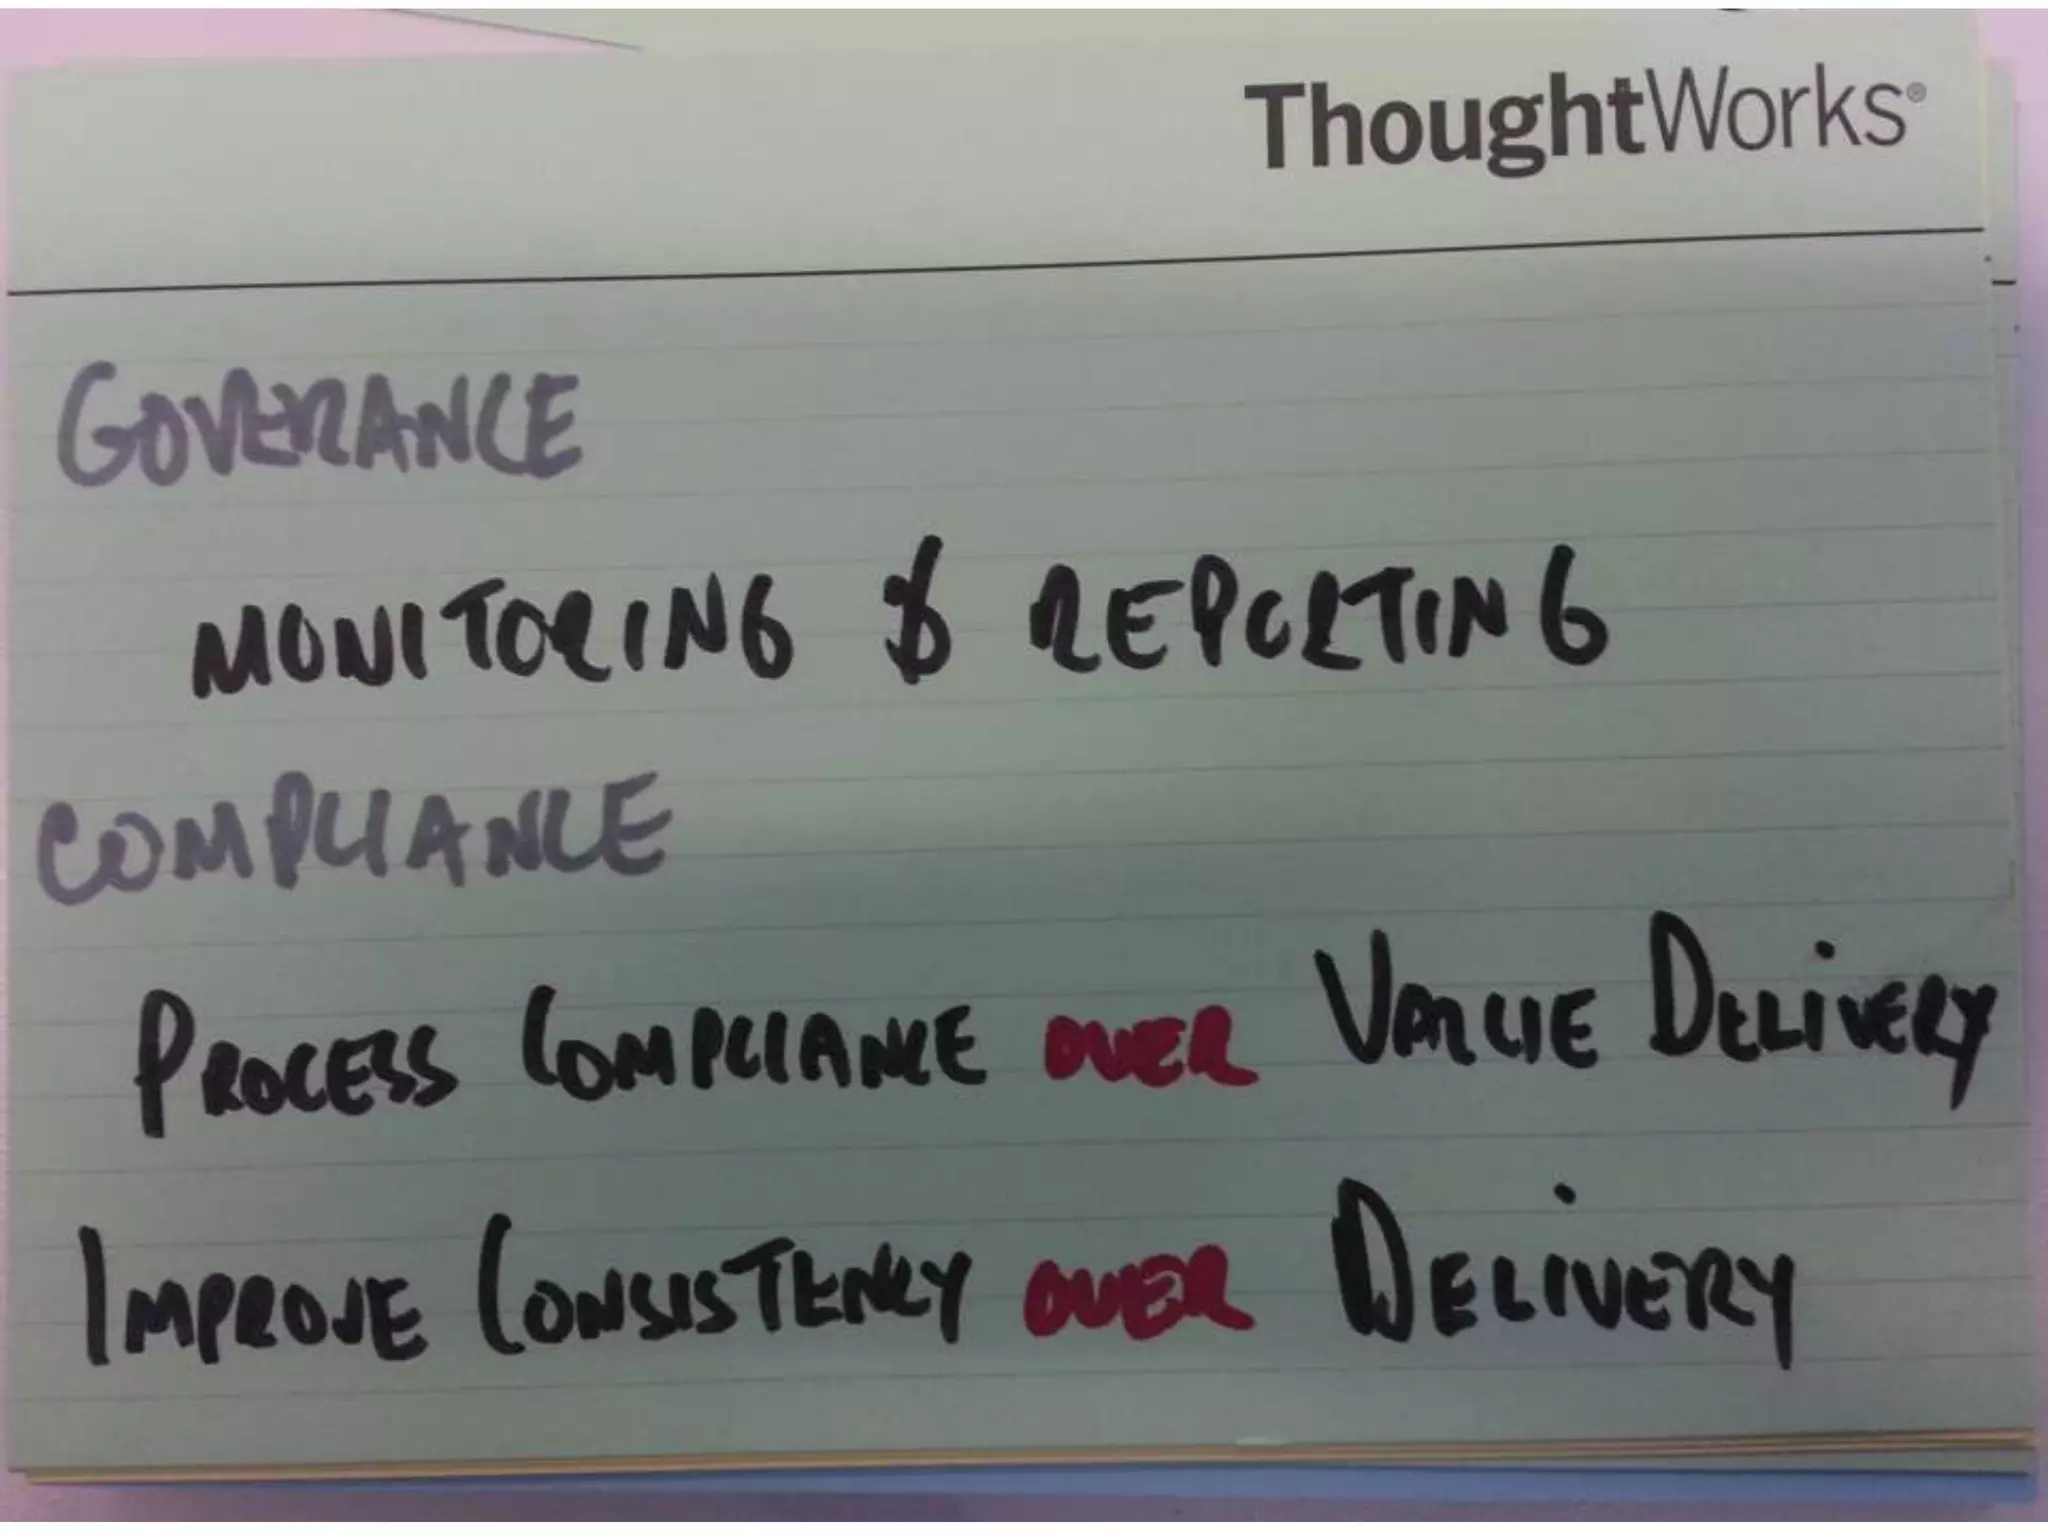 ThoughtWorks®
GOVERNANCE
MONITORING & REPORTING
COMPLIANCE
PROCESS COMPLIANCE OVER VALUE DELIVERY
IMPROVE CONSISTENCY OVER DELIVERY